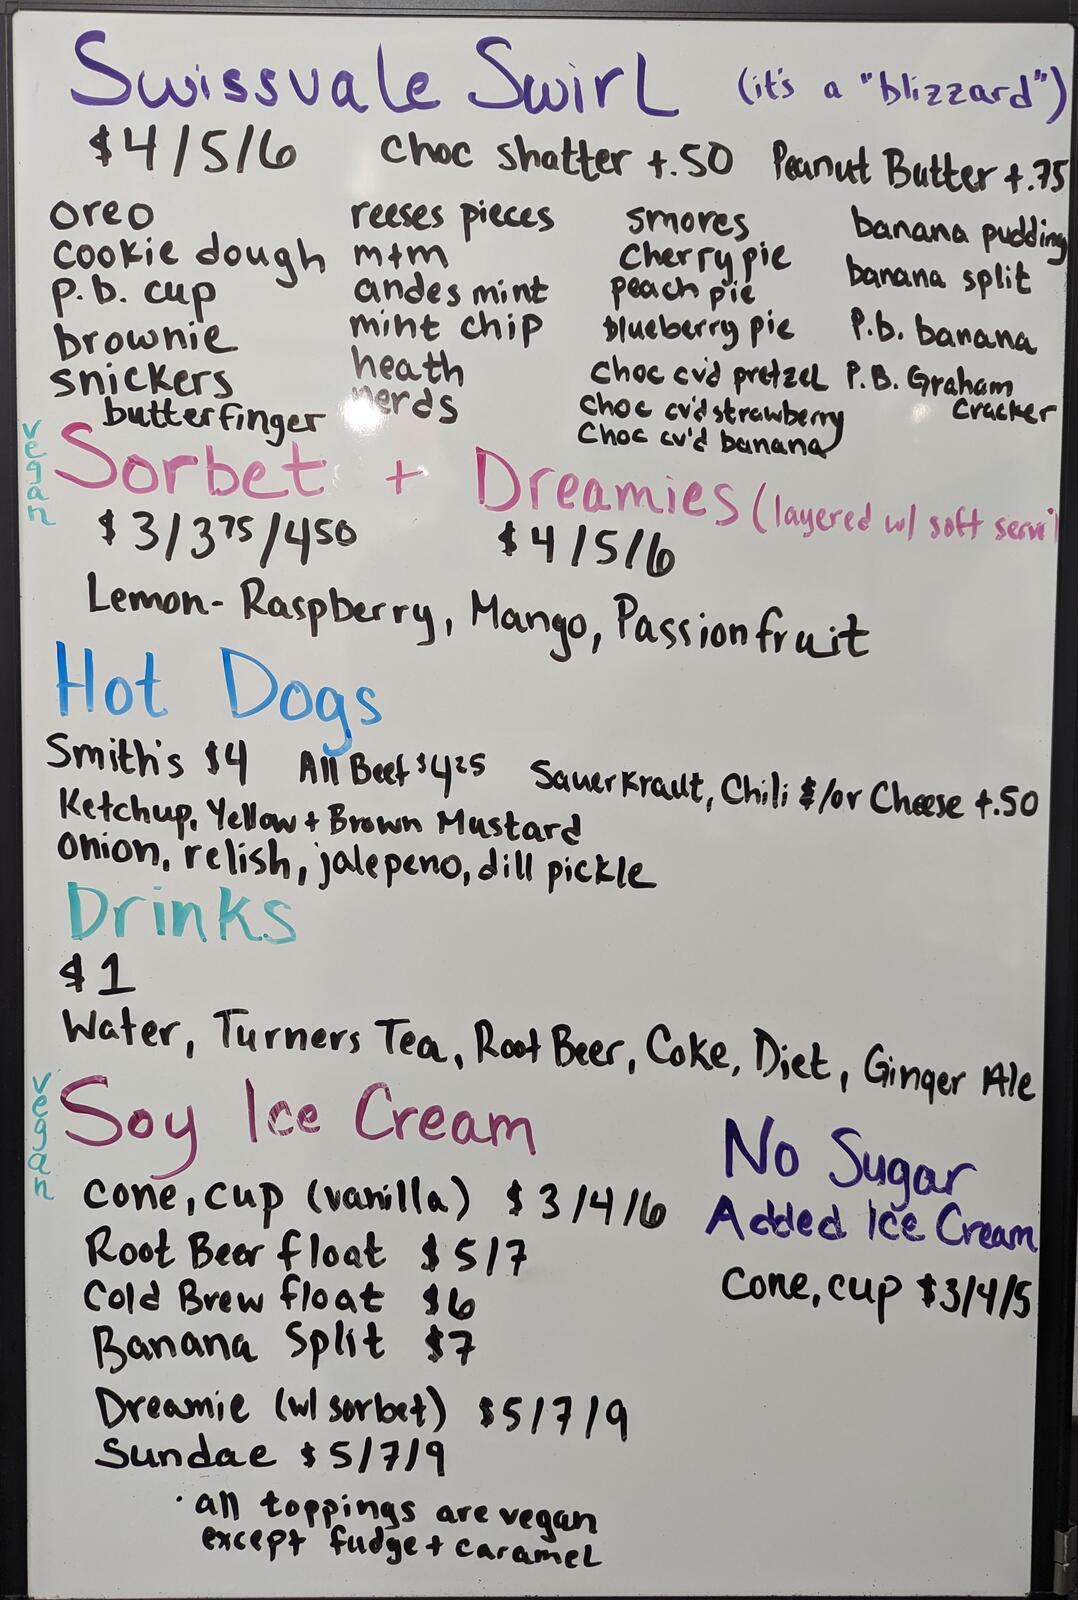 Swissvale Swirl (it's a "blizzard")
$4/5/6 choc shatter +.50 Peanut Butter +.75
oreo reeses pieces smores banana pudding
cookie dough m+m cherry pie banana split
p.b. cup andes mint peach pie P.b. banana
brownie mint chip blueberry pie P.B. Graham cracker
snickers heath choc cv'd pretzel
butterfinger nerds choc cv'd strawberry
choc cv'd banana
vegan
Sorbet + Dreamies (layered w/ soft serve)
$3/3 75/4 50 $4/5/6
Lemon-Raspberry, Mango, Passionfruit
Hot Dogs
Smith's $4 All Beef $4 25 Sauerkraut, Chili &/or Cheese +.50
Ketchup, Yellow + Brown Mustard
onion, relish, jalepeno, dill pickle
Drinks
$1
Water, Turners Tea, Root Beer, Coke, Diet, Ginger Ale
vegan
Soy Ice Cream
cone, cup (vanilla) $3/4/6
Root Beer float $5/7
Cold Brew float $6
Banana Split $7
Dreamie (w/ sorbet) $5/7/9
Sundae $5/7/9
· all toppings are vegan
except fudge + caramel
No Sugar
Added Ice Cream
Cone, cup $3/4/5